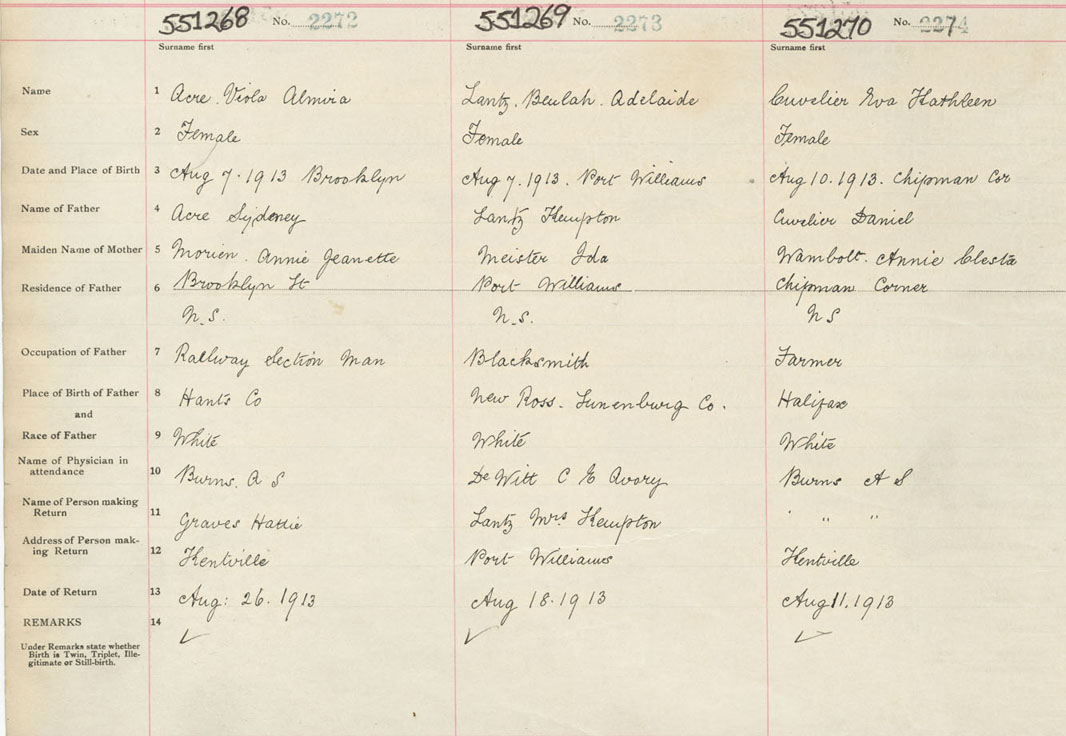 551268 No. 2272 551269 No. 2273 551270 No. 2274
Surname first Surname first Surname first
Name 1 Acre. Viola Almira Lantz. Beulah. Adelaide Cuvelier Eva Kathleen
Sex 2 Female Female Female
Date and Place of Birth 3 Aug 7. 1913 Brooklyn Aug 7. 1913. Port Williams Aug 10. 1913. Chipman Cor
Name of Father 4 Acre Sydeney Lantz Kempton Cuvelier Daniel
Maiden Name of Mother 5 Morien. Annie Jeanette Meister Ida Wambolt. Annie Clesta
Residence of Father 6 Brooklyn St Port Williams Chipman Corner
N.S. N.S. N S
Occupation of Father 7 Railway Section Man Blacksmith Farmer
Place of Birth of Father 8 Hants Co New Ross. Lunenburg Co. Halifax
and
Race of Father 9 White White White
Name of Physician in
attendance 10 Burns. A S DeWitt C E Avory Burns A S
Name of Person making
Return 11 Graves Hattie Lantz Mrs Kempton " " "
Address of Person mak-
ing Return 12 Kentville Port Williams Kentville
Date of Return 13 Aug: 26. 1913 Aug 18. 1913 Aug 11. 1913
REMARKS 14 ✓ ✓ ✓
Under Remarks state whether
Birth is Twin, Triplet, Ille-
gitimate or Still-birth.